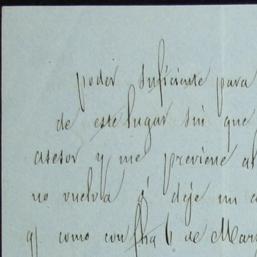 poder suficiente para
de este lugar sin que
asesor y me previene al
no vuelva á deje un a
q/ como con fha 6 de Mar